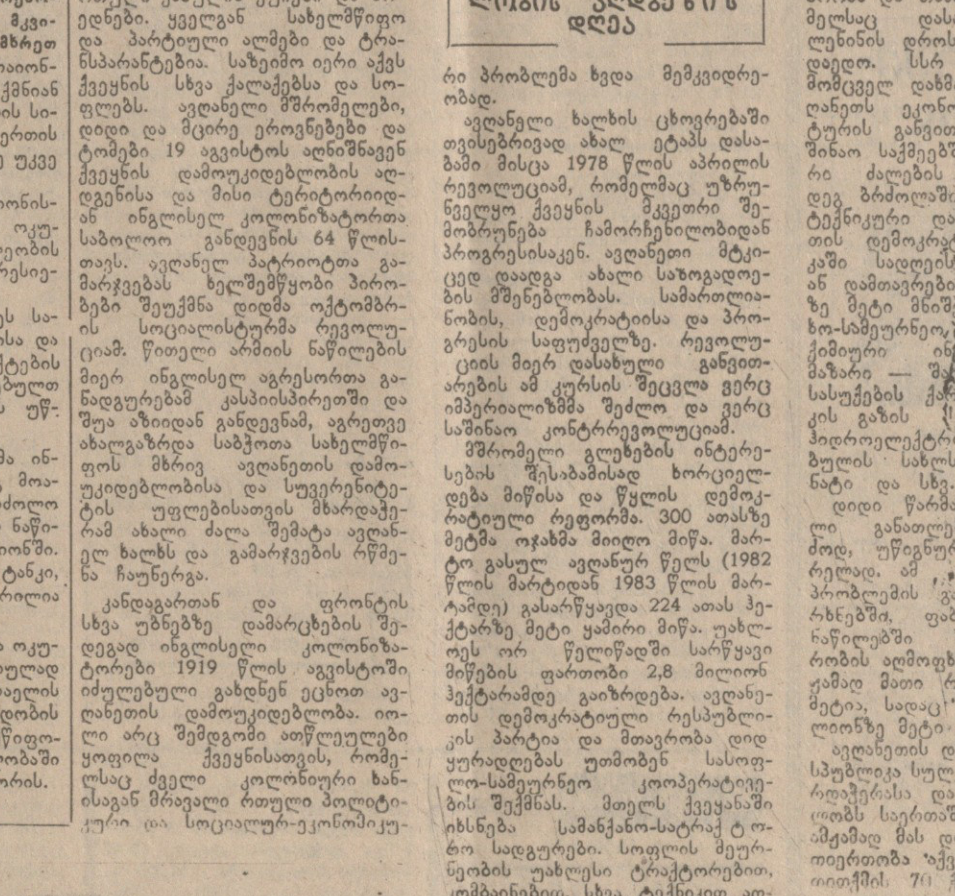 მკვი-
მხრეთ
რაიონ-
ქმნიან
ის სი-
ერთის
უკვე
იონის-
ოკუ-
ეობის
რესიე-
ეს სა-
სა და
ქტების
ებულთ
უწ-
მა ინ-
მოა-
იძოლო
ნაწი-
იონში.
ტანკი,
რილია
ოკუ-
ულად
აელის
დობის
წიფო-
ობაში
ორის.
ედნები. ყველგან სახელმწიფო
და პარტიული ალმები და ტრა-
ნსპარანტებია. საზეიმო იერი აქვს
ქვეყნის სხვა ქალაქებსა და სო-
ფლებს. ავღანელი მშრომელები,
დიდი და მცირე ეროვნებები და
ტომები 19 აგვისტოს აღნიშნავენ
ქვეყნის დამოუკიდებლობის აღ-
დგენისა და მისი ტერიტორიიდ-
ან ინგლისელ კოლონიზატორთა
საბოლოო განდევნის 64 წლის-
თავს. ავღანელ პატრიოტთა გა-
მარჯვებას ხელშემწყობი პირო-
ბები შეუქმნა დიდმა ოქტომბრ-
ის სოციალისტურმა რევოლუ-
ციამ. წითელი არმიის ნაწილების
მიერ ინგლისელ აგრესორთა გა-
ნადგურებამ კასპიისპირეთში და
შუა აზიიდან განდევნამ, აგრეთვე
ახალგაზრდა საბჭოთა სახელმწი-
ფოს მხრივ ავღანეთის დამო-
უკიდებლობისა და სუვერენიტე-
ტის უფლებისათვის მხარდაჭე-
რამ ახალი ძალა შემატა ავღან-
ელ ხალხს და გამარჯვების რწმე-
ნა ჩაუნერგა.
კანდაგართან და ფრონტის
სხვა უბნებზე დამარცხების შე-
დეგად ინგლისელი კოლონიზა-
ტორები 1919 წლის აგვისტოში
იძულებული გახდნენ ეცნოთ ავ-
ღანეთის დამოუკიდებლობა. იო-
ლი არც შემდგომი ათწლეულები
ყოფილა ქვეყნისათვის, რომე-
ლსაც ძველი კოლონიური ხან-
ისაგან მრავალი რთული პოლიტი-
კური და სოციალურ-ეკონომიკუ-
დღეა
რი პრობლემა ხვდა მემკვიდრე-
ობად.
ავღანელი ხალხის ცხოვრებაში
თვისებრივად ახალ ეტაპს დასა-
ბამი მისცა 1978 წლის აპრილის
რევოლუციამ, რომელმაც უზრუ-
ნველყო ქვეყნის მკვეთრი შე-
მობრუნება ჩამორჩენილობიდან
პროგრესისაკენ. ავღანეთი მტკი-
ცედ დაადგა ახალი საზოგადოე-
ბის მშენებლობას. სამართლია-
ნობის, დემოკრატიისა და პრო-
გრესის საფუძველზე. რევოლუ-
ციის მიერ დასახული განვით-
არების ამ კურსის შეცვლა ვერც
იმპერიალიზმმა შეძლო და ვერც
საშინაო კონტრრევოლუციამ.
მშრომელი გლეხების ინტერე-
სების შესაბამისად ხორციელ-
დება მიწისა და წყლის დემოკ-
რატიული რეფორმა. 300 ათასზე
მეტმა ოჯახმა მიიღო მიწა. მარ-
ტო გასულ ავღანურ წელს (1982
წლის მარტიდან 1983 წლის მარ-
ტამდე) გასარწყავდა 224 ათას ჰე-
ქტარზე მეტი ყამირი მიწა. უახლ-
ოეს ორ წელიწადში სარწყავი
მიწების ფართობი 2,8 მილიონ
ჰექტარამდე გაიზრდება. ავღანე-
თის დემოკრატიული რესპუბლი-
კის პარტია და მთავრობა დიდ
ყურადღებას უთმობენ სასოფ-
ლო-სამეურნეო კოოპერატივე-
ბის შექმნას. მთელს ქვეყანაში
იხსნება სამანქანო-სატრაქტო-
რო სადგურები. სოფლის მეურ-
ნეობის უახლესი ტრაქტორებით,
კომბაინებით, სხვა ტექნიკით აღ-
მელსაც
ლენინის დროს
დაედო. სსრ
მომცველ დახმ
ღანეთს ეკონო
ტურის განვით
შინაო საქმეებშ
რი ძალების
დეგ ბრძოლაში
ტექნიკური და
თის დემოკრატ
კაში სადღეის
ან დამთავრები
ზე მეტი მნიშ
ხო-სამეურნეო,
ქიმიური ინ
მაზარი — მა
სასუქების ქარ
კის გაზის
ჰიდროელექტრ
ბულის სახლს
ნატი და სხვ.
დიდი წარმა
ლი განათლე
ძოდ, უწიგნურ
რელად. ამ
პრობლემის გა
რხნებში, ფაბ
ნაწილებში
რობის აღმოფხ
ჟამად მათი რ
მეტია, სადაც
ლიონზე მეტი
ავღანეთის დ
სპუბლიკა სულ
რდაჭერასა და
ლობს საერთაშ
ამჟამად მას დ
თიერთობა აქვ
თითქმის 70